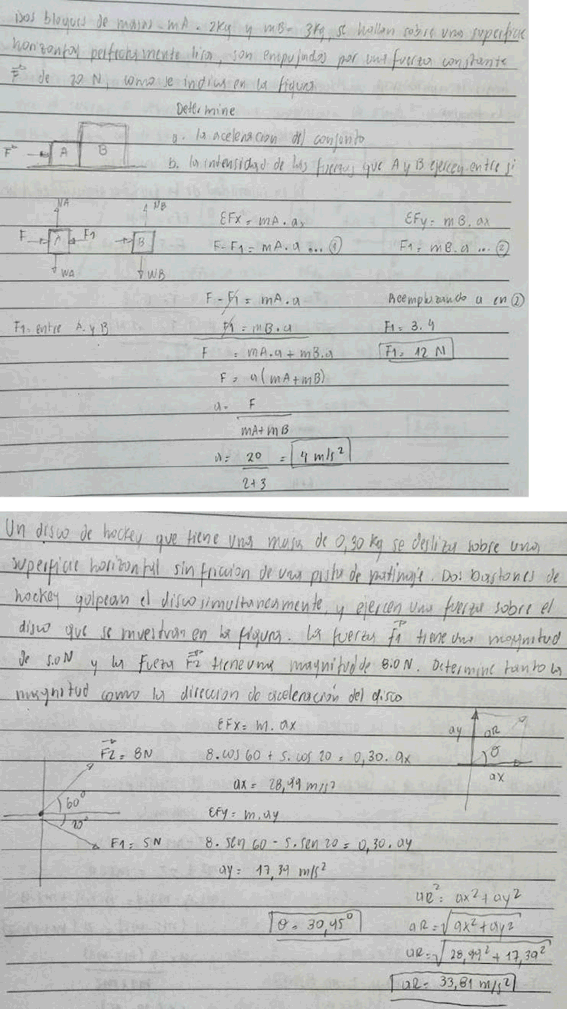 Dos bloques de masas mA = 2kg y mB = 3kg, se hallan sobre una superficie
horizontal perfectamente lisa, son empujados por una fuerza constante
F de 20 N, como se indica en la figura.
Determine
a. la aceleracion del conjunto
F A B
b. la intensidad de las fuerzas que A y B ejercen entre si
NA NB
ΣFx = mA.ax ΣFy = mB.ax
F A F1 B
F - F1 = mA.a ... ① F1 = mB.a ... ②
WA WB
F - F1 = mA.a Reemplazando a en ②
F1 entre A y B F1 = mB.a F1 = 3.4
F = mA.a + mB.a F1 = 12 N
F = a(mA+mB)
a = F
mA+mB
a = 20 = 4 m/s²
2+3
Un disco de hockey que tiene una masa de 0,30 kg se desliza sobre una
superficie horizontal sin friccion de una pista de patinaje. Dos bastones de
hockey golpean el disco simultaneamente, y ejercen una fuerza sobre el
disco que se muestran en la figura. La fuerza F1 tiene una magnitud
de 5.0 N y la fuerza F2 tiene una magnitud de 8.0 N. Determine tanto la
magnitud como la direccion de aceleración del disco
ΣFx = m.ax
ay aR
F2 = 8N 8.cos 60 + 5.cos 20 = 0,30.ax θ
ax = 28,99 m/s² ax
60° ΣFy = m.ay
20°
F1 = 5N 8.sen 60 - 5.sen 20 = 0,30.ay
ay = 17,39 m/s²
aR² = ax² + ay²
θ = 30,95° aR = √ax² + ay²
aR = √28,99² + 17,39²
aR = 33,81 m/s²